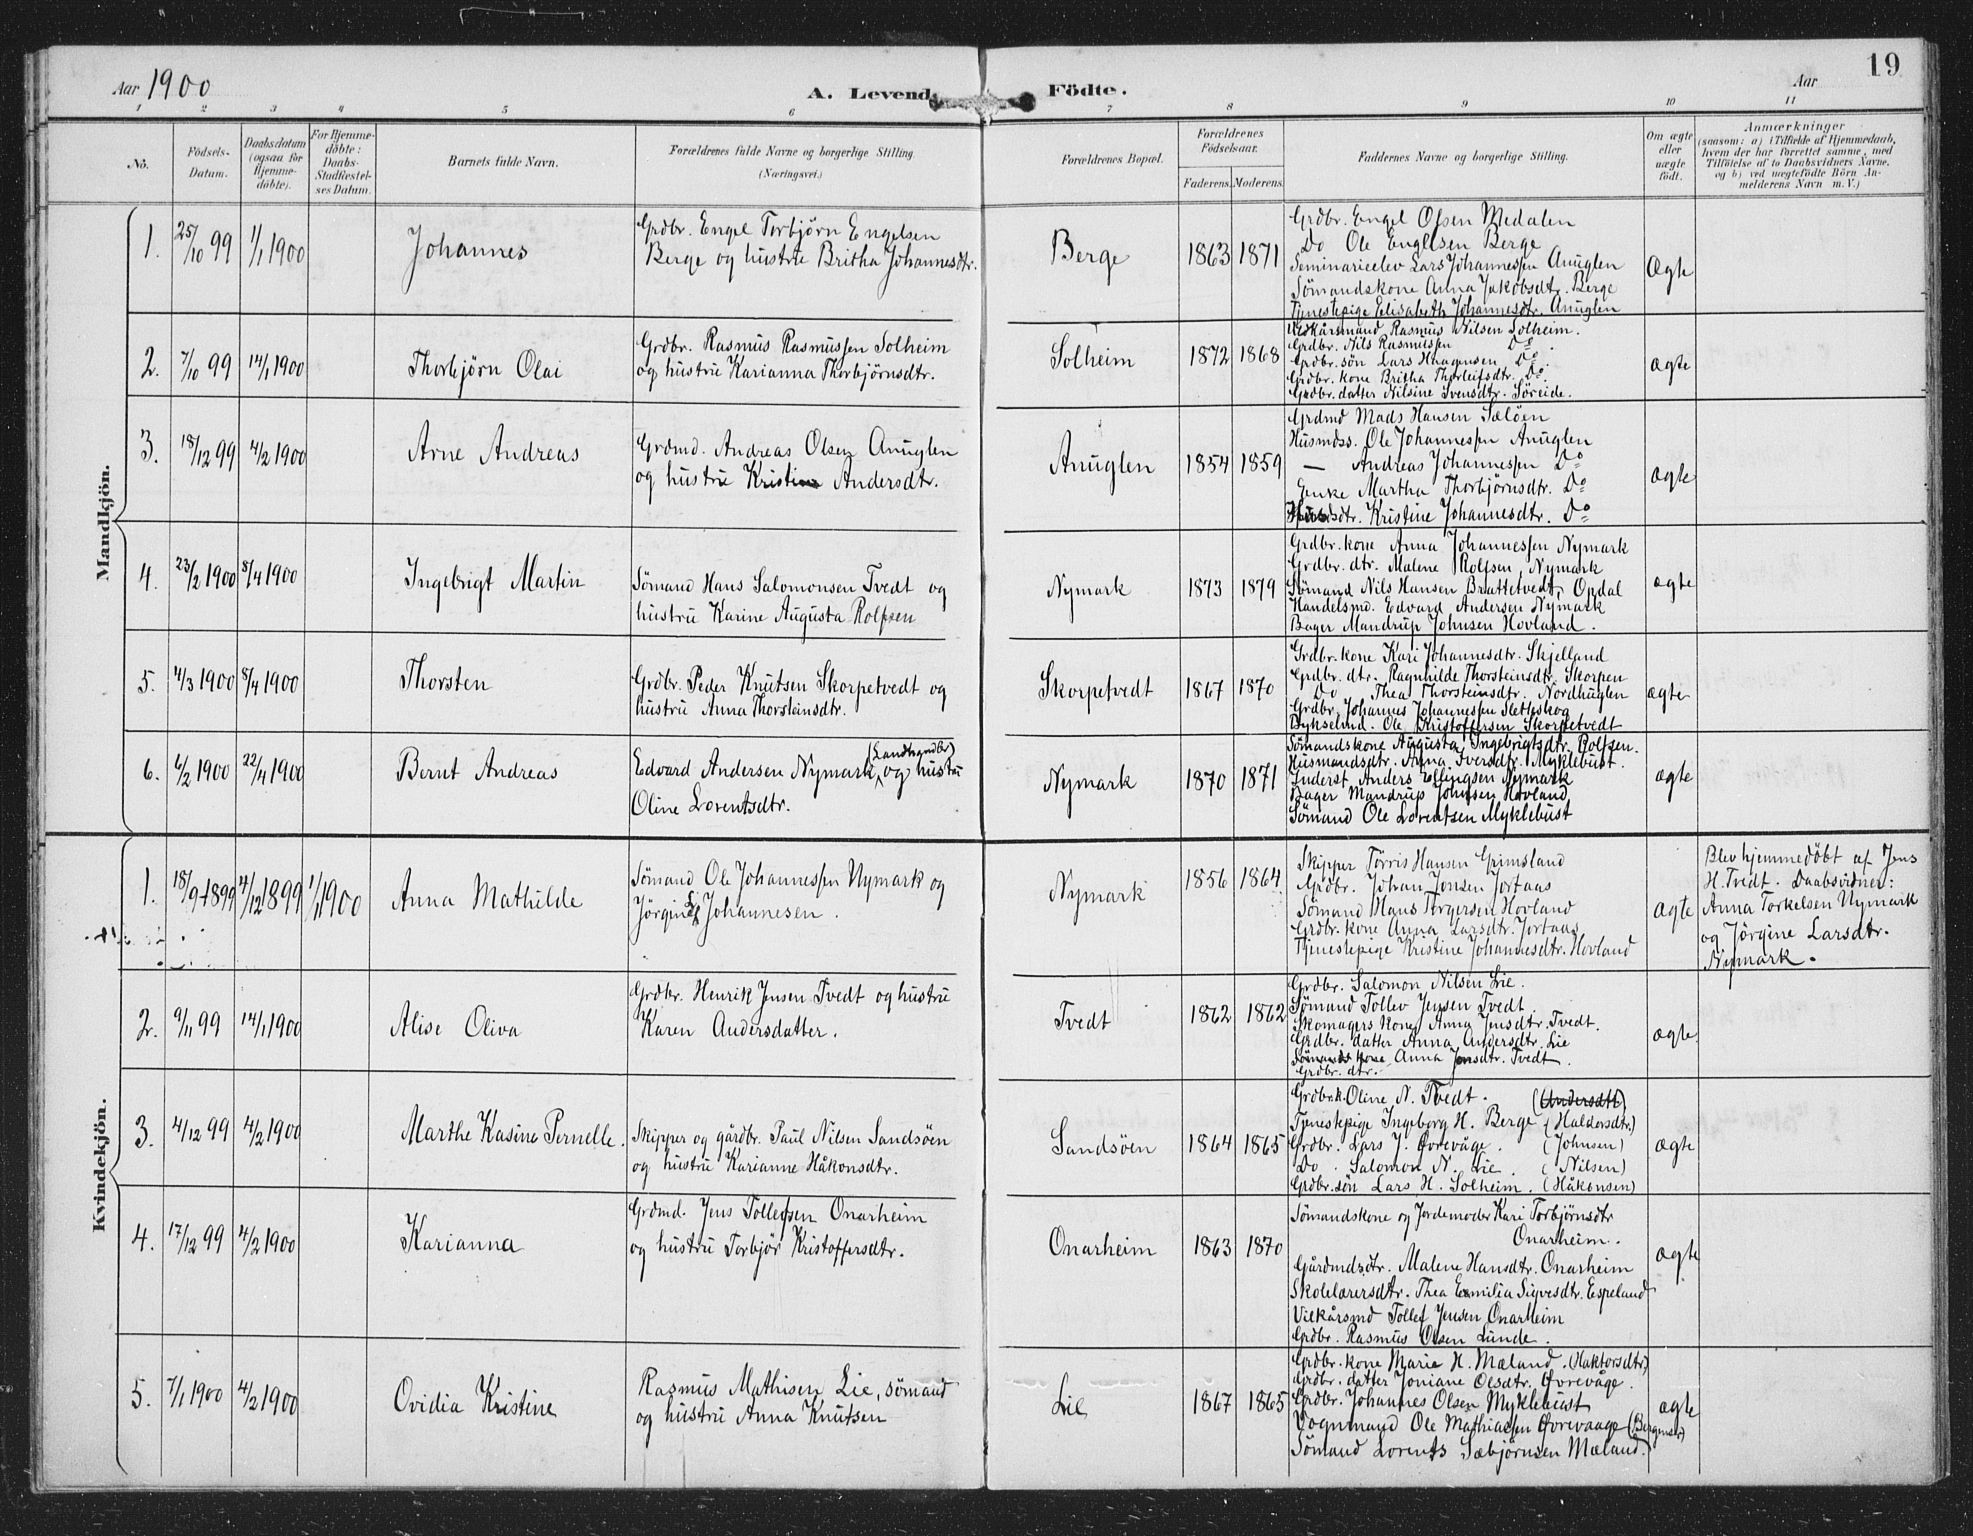 Aar 1900
A. Levende Födte.
Aar
19
1 2 3 4 5 6 7 8 9 10 11
No.
Födsels-
Datum.
Daabsdatum
(ogsaa for
Hjemme-
döbte).
For Hjemme-
döbte:
Daabs-
Stadfæstel-
ses Datum.
Barnets fulde Navn.
Forældrenes fulde Navne og borgerlige Stilling
(Næringsvei.)
Forældrenes Bopæl.
Forældrenes
Födselsaar.
Faderens. Moderens.
Faddernes Navne og borgerlige Stilling.
Om ægte
eller
uægte
födt.
Anmærkninger
(saasom: a) (Tilfælde af Hjemmedaab,
hvem der har forrettet samme, med
Tilföielse af to Daabsvidners Navne.
og b) ved uægtefödte Börn An-
melderens Navn m. V.)
Mandkjön.
1. 25/10 99 1/1 1900 Johannes
Grdbr. Engel Torbjörn Engelsen
Berge og hustru Britha Johannesdtr.
Berge 1863 1871
Grdbr. Engel Olsen Medalen
Do Ole Engelsen Berge
Seminarieelev Lars Johannessen Anuglen
Sömandskone Anna Jakobsdtr. Berge
Tjenestepige Elisabeth Johannesdtr. Anuglen
Ægte
2. 7/10 99 14/1 1900 Thorbjörn Olai
Grdbr. Rasmus Rasmussen Solheim
og hustru Karianna Thorbjörnsdtr.
Solheim 1872 1868
Vilkårsmand Rasmus Nilsen Solheim.
Grdbr. Nils Rasmussen Do.
Grdbr. sön Lars Haagensen Do.
Grdbr. kone Britha Thorleifsdtr. Do.
Grdbr. datter Nilsine Svensdtr. Söreide.
ægte
3. 18/12 99 4/2 1900 Arne Andreas
Grdmd. Andreas Olsen Anuglen
og hustru Kristine Andersdtr.
Anuglen 1854 1859
Grdmd Mads Hansen Sælöen
Husmdss. Ole Johannessen Anuglen
— Andreas Johannessen Do
Enke Martha Thorbjörnsdtr. Do
Husmdsdtr. Kristine Johannesdtr. Do
ægte
4. 23/2 1900 8/4 1900 Ingebrigt Martin
Sömand Hans Salomonsen Tvedt og
hustru Karine Augusta Rolfsen
Nymark 1873 1879
Grdbr. kone Anna Johannessen Nymark
Grdbr. dtr. Malene Rolfsen Nymark
Sömand Nils Hansen Brattetvedt, Opdal
Handelsmd. Edvard Andersen Nymark
Bager Mandrup Johnsen Hovland.
ægte
5. 4/3 1900 8/4 1900 Thorsten
Grdbr. Peder Knutsen Skorpetvedt og
hustru Anna Thorsteinsdtr.
Skorpetvedt 1867 1870
Grdbr. kone Kari Johannesdtr. Skjelland
Grdbr. dtr. Ragnhilde Thorsteinsdtr. Skorpen
Do Thea Thorsteinsdtr. Nordhuglen
Grdbr. Johannes Johannessen Slethskog
Bykselmd. Ole Kristoffersen Skorpetvedt
ægte
6. 6/2 1900 22/4 1900 Bernt Andreas
Edvard Andersen Nymark (Landhandler) og hustru
Oline Lorentsdtr.
Nymark 1870 1871
Sömandskone Augusta Ingebrigtsdtr. Rolfsen.
Husmandsdtr. Anna Iversdtr. Myklebust.
Inderst Anders Ellingsen Nymark
Bager Mandrup Johnsen Hovland
Sömand Ole Lorentsen Myklebust
ægte
Kvindekjön.
1. 18/9 1899 4/12 1899 1/1 1900 Anna Mathilde
Sömand Ole Johannessen Nymark og
Jörgine Johannesen.
Nymark 1856 1864
Skipper Törris Hansen Grimsland
Grdbr. Johan Jensen Jortaas
Sömand Hans Torgersen Hovland
Grdbr. kone Anna Larsdtr. Jortaas
Tjenestepige Kristine Johannesdtr. Hovland
ægte
Blev hjemmedöbt af Jens
H. Tvedt. Daabsvidner:
Anna Torkelsen Nymark
og Jörgine Larsdtr.
Nymark.
2. 9/11 99 14/1 1900 Alise Oliva
Grdbr. Henrik Jensen Tvedt og hustru
Karen Andersdatter.
Tvedt 1862 1862
Grdbr. Salomon Nilsen Lie.
Sömand Tollev Jensen Tvedt
Skomagers kone Anna Jensdtr. Tvedt.
Grdbr. datter Anna Andersdtr. Lie
Sömands kone Anna Jensdtr. Tvedt.
Grdbr. dtr.
ægte.
3. 4/12 99 4/2 1900 Marthe Kasine Pernelle.
Skipper og gårdbr. Paul Nilsen Sandsöen
og hustru Karianne Håkonsdtr.
Sandsöen 1864 1865
Grdbr.k. Oline N. Tvedt. (Andersdtr)
Tjenestepige Ingeborg H. Berge (Haldorsdtr.)
Grdbr. Lars J. Övrevåge. (Johnsen)
Do. Salomon N. Lie. (Nilsen)
Grdbr. sön Lars H. Solheim. (Håkonsen)
ægte
4. 17/12 99 4/2 1900 Karianna
Grdmd. Jens Tollefsen Onarheim
og hustru Torbjör Kristoffersdtr.
Onarheim 1863 1870
Sömandskone og Jordemoder Kari Torbjörnsdtr
Onarheim.
Gårdmdsdtr. Malene Hansdtr. Onarheim
Skolelærersdtr. Thea Emilia Sigvesdtr. Espeland
Vilkårsmd Tollef Jensen Onarheim
Grdbr. Rasmus Olsen Lunde.
ægte
5. 7/1 1900 4/2 1900 Ovidia Kristine
Rasmus Mathisen Lie, sömand
og hustru Anna Knutsen
Lie 1867 1865
Grdbr. kone Marie H. Mæland. (Haktorsdtr)
Grdbr. datter Joniane Olsdtr. Övrevåge.
Grdbr. Johannes Olsen Myklebust
Vognmand Ole Mathiassen Övrevaage (Bergmer)
Sömand Lorents Sæbjörnsen Mæland.
ægte